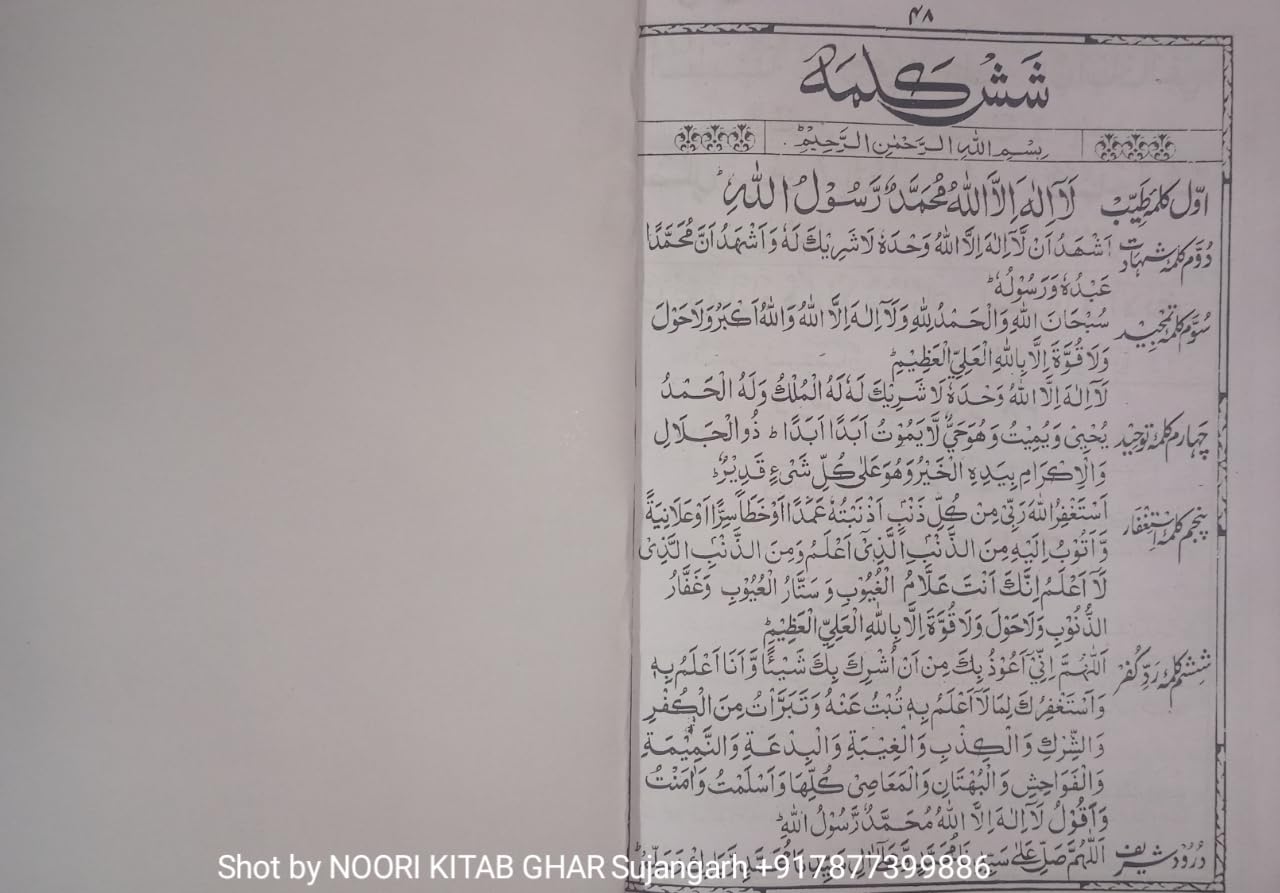 ۴۸
شَشْ كَلِمَهْ
بِسْمِ اللهِ الرَّحْمٰنِ الرَّحِيْمِ ؕ
اوّل کلمہ طیّب لَآ اِلٰهَ اِلَّا اللهُ مُحَمَّدٌ رَّسُوْلُ اللهِ ؕ
دُوَّم کلمۂ شہادت اَشْهَدُ اَنْ لَّآ اِلٰهَ اِلَّا اللهُ وَحْدَهٗ لَا شَرِيْكَ لَهٗ وَاَشْهَدُ اَنَّ مُحَمَّدًا
عَبْدُهٗ وَرَسُوْلُهٗ ؕ
سُوَّم کلمۂ تمجید سُبْحَانَ اللهِ وَالْحَمْدُ لِلّٰهِ وَلَآ اِلٰهَ اِلَّا اللهُ وَاللهُ اَكْبَرُ وَلَا حَوْلَ
وَلَا قُوَّةَ اِلَّا بِاللهِ الْعَلِيِّ الْعَظِيْمِ ؕ
لَآ اِلٰهَ اِلَّا اللهُ وَحْدَهٗ لَا شَرِيْكَ لَهٗ لَهُ الْمُلْكُ وَلَهُ الْحَمْدُ
چہارم کلمۂ توحید يُحْيِىْ وَيُمِيْتُ وَهُوَ حَيٌّ لَّا يَمُوْتُ اَبَدًا اَبَدًا ؕ ذُو الْجَلَالِ
وَالْاِكْرَامِ بِيَدِهِ الْخَيْرُ وَهُوَ عَلٰى كُلِّ شَىْءٍ قَدِيْرٌ ؕ
پنجم کلمۂ اِسْتِغْفَار اَسْتَغْفِرُ اللهَ رَبِّىْ مِنْ كُلِّ ذَنْبٍ اَذْنَبْتُهٗ عَمَدًا اَوْ خَطَأً سِرًّا اَوْ عَلَانِيَةً
وَّاَتُوْبُ اِلَيْهِ مِنَ الذَّنْبِ الَّذِىْ اَعْلَمُ وَمِنَ الذَّنْبِ الَّذِىْ
لَآ اَعْلَمُ اِنَّكَ اَنْتَ عَلَّامُ الْغُيُوْبِ وَسَتَّارُ الْعُيُوْبِ وَغَفَّارُ
الذُّنُوْبِ وَلَا حَوْلَ وَلَا قُوَّةَ اِلَّا بِاللهِ الْعَلِيِّ الْعَظِيْمِ ؕ
ششم کلمۂ رَدِّ کُفْر اَللّٰهُمَّ اِنِّىْٓ اَعُوْذُ بِكَ مِنْ اَنْ اُشْرِكَ بِكَ شَيْئًا وَّاَنَا اَعْلَمُ بِهٖ
وَاَسْتَغْفِرُكَ لِمَا لَآ اَعْلَمُ بِهٖ تُبْتُ عَنْهُ وَتَبَرَّأْتُ مِنَ الْكُفْرِ
وَالشِّرْكِ وَالْكِذْبِ وَالْغِيْبَةِ وَالْبِدْعَةِ وَالنَّمِيْمَةِ
وَالْفَوَاحِشِ وَالْبُهْتَانِ وَالْمَعَاصِىْ كُلِّهَا وَاَسْلَمْتُ وَاٰمَنْتُ
وَاَقُوْلُ لَآ اِلٰهَ اِلَّا اللهُ مُحَمَّدٌ رَّسُوْلُ اللهِ ؕ
دُرُوْد شریف اَللّٰهُمَّ صَلِّ عَلٰى
Shot by NOORI KITAB GHAR Sujangarh +917877399886